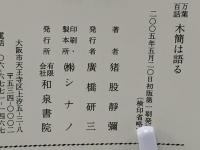 万葉百話 木簡は語る
二〇〇五年五月二〇日初版第一刷発
(検印省略)
著者 猪股靜彌
発行者 廣橋研三
印刷・製本所 ㈱シナノ
発行所 有限会社 和泉書院
大阪市天王寺区上汐五-三-八
〒五四三-〇〇
電話 〇六-六七七一-一四六七